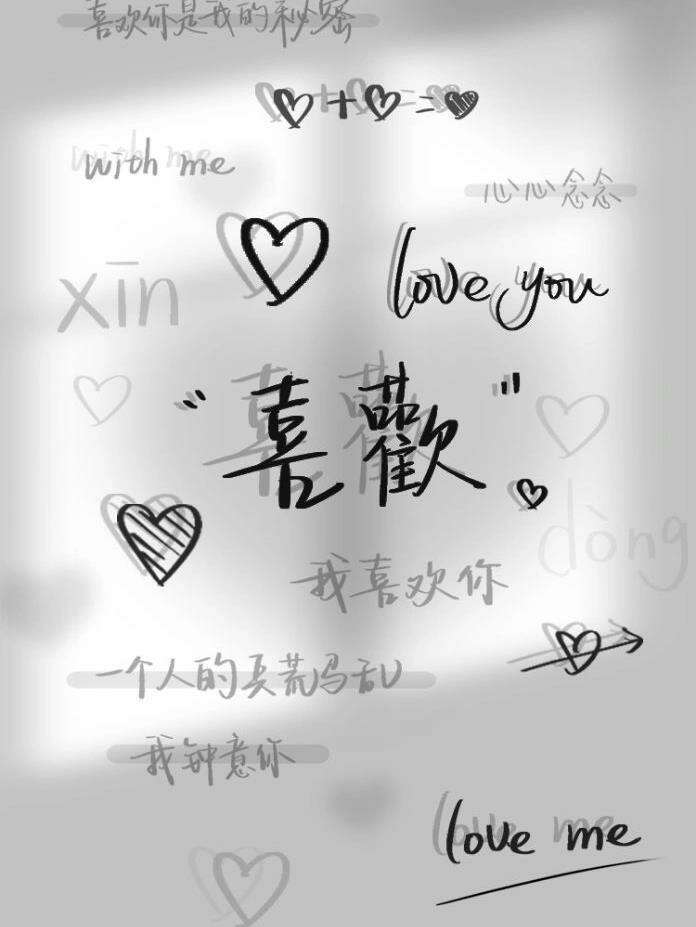 喜欢你是我的秘密
with me
心心念念
xīn
love you
"喜歡"
dòng
我喜欢你
一个人的兵荒马乱
我钟意你
love me